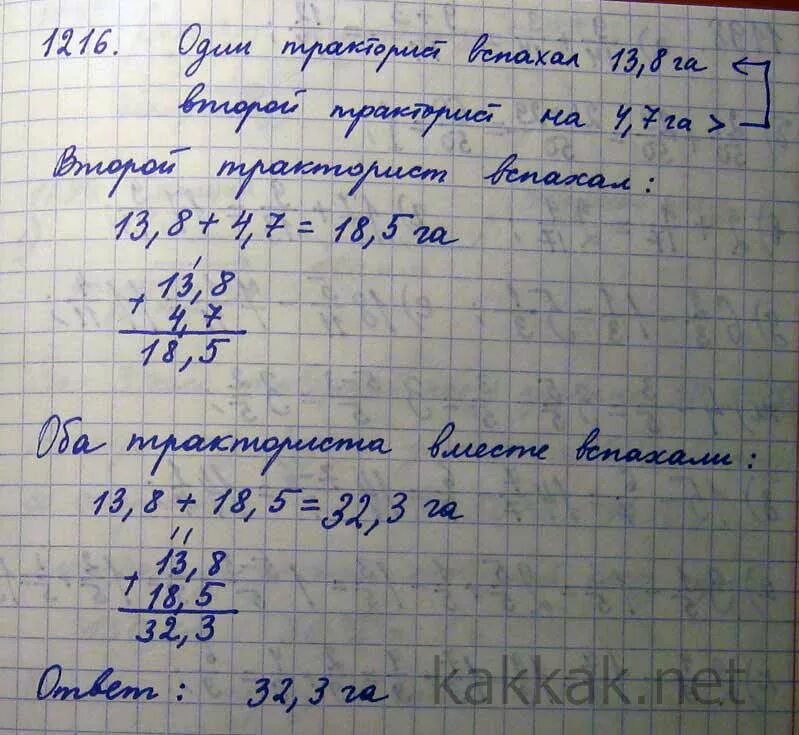 1216. Один тракторист вспахал 13,8 га <
второй тракторист на 4,7 га >
Второй тракторист вспахал:
13,8 + 4,7 = 18,5 га
+ 13,8
4,7
18,5
Оба тракториста вместе вспахали:
13,8 + 18,5 = 32,3 га
+ 13,8
18,5
32,3
Ответ: 32,3 га
kakkak.net